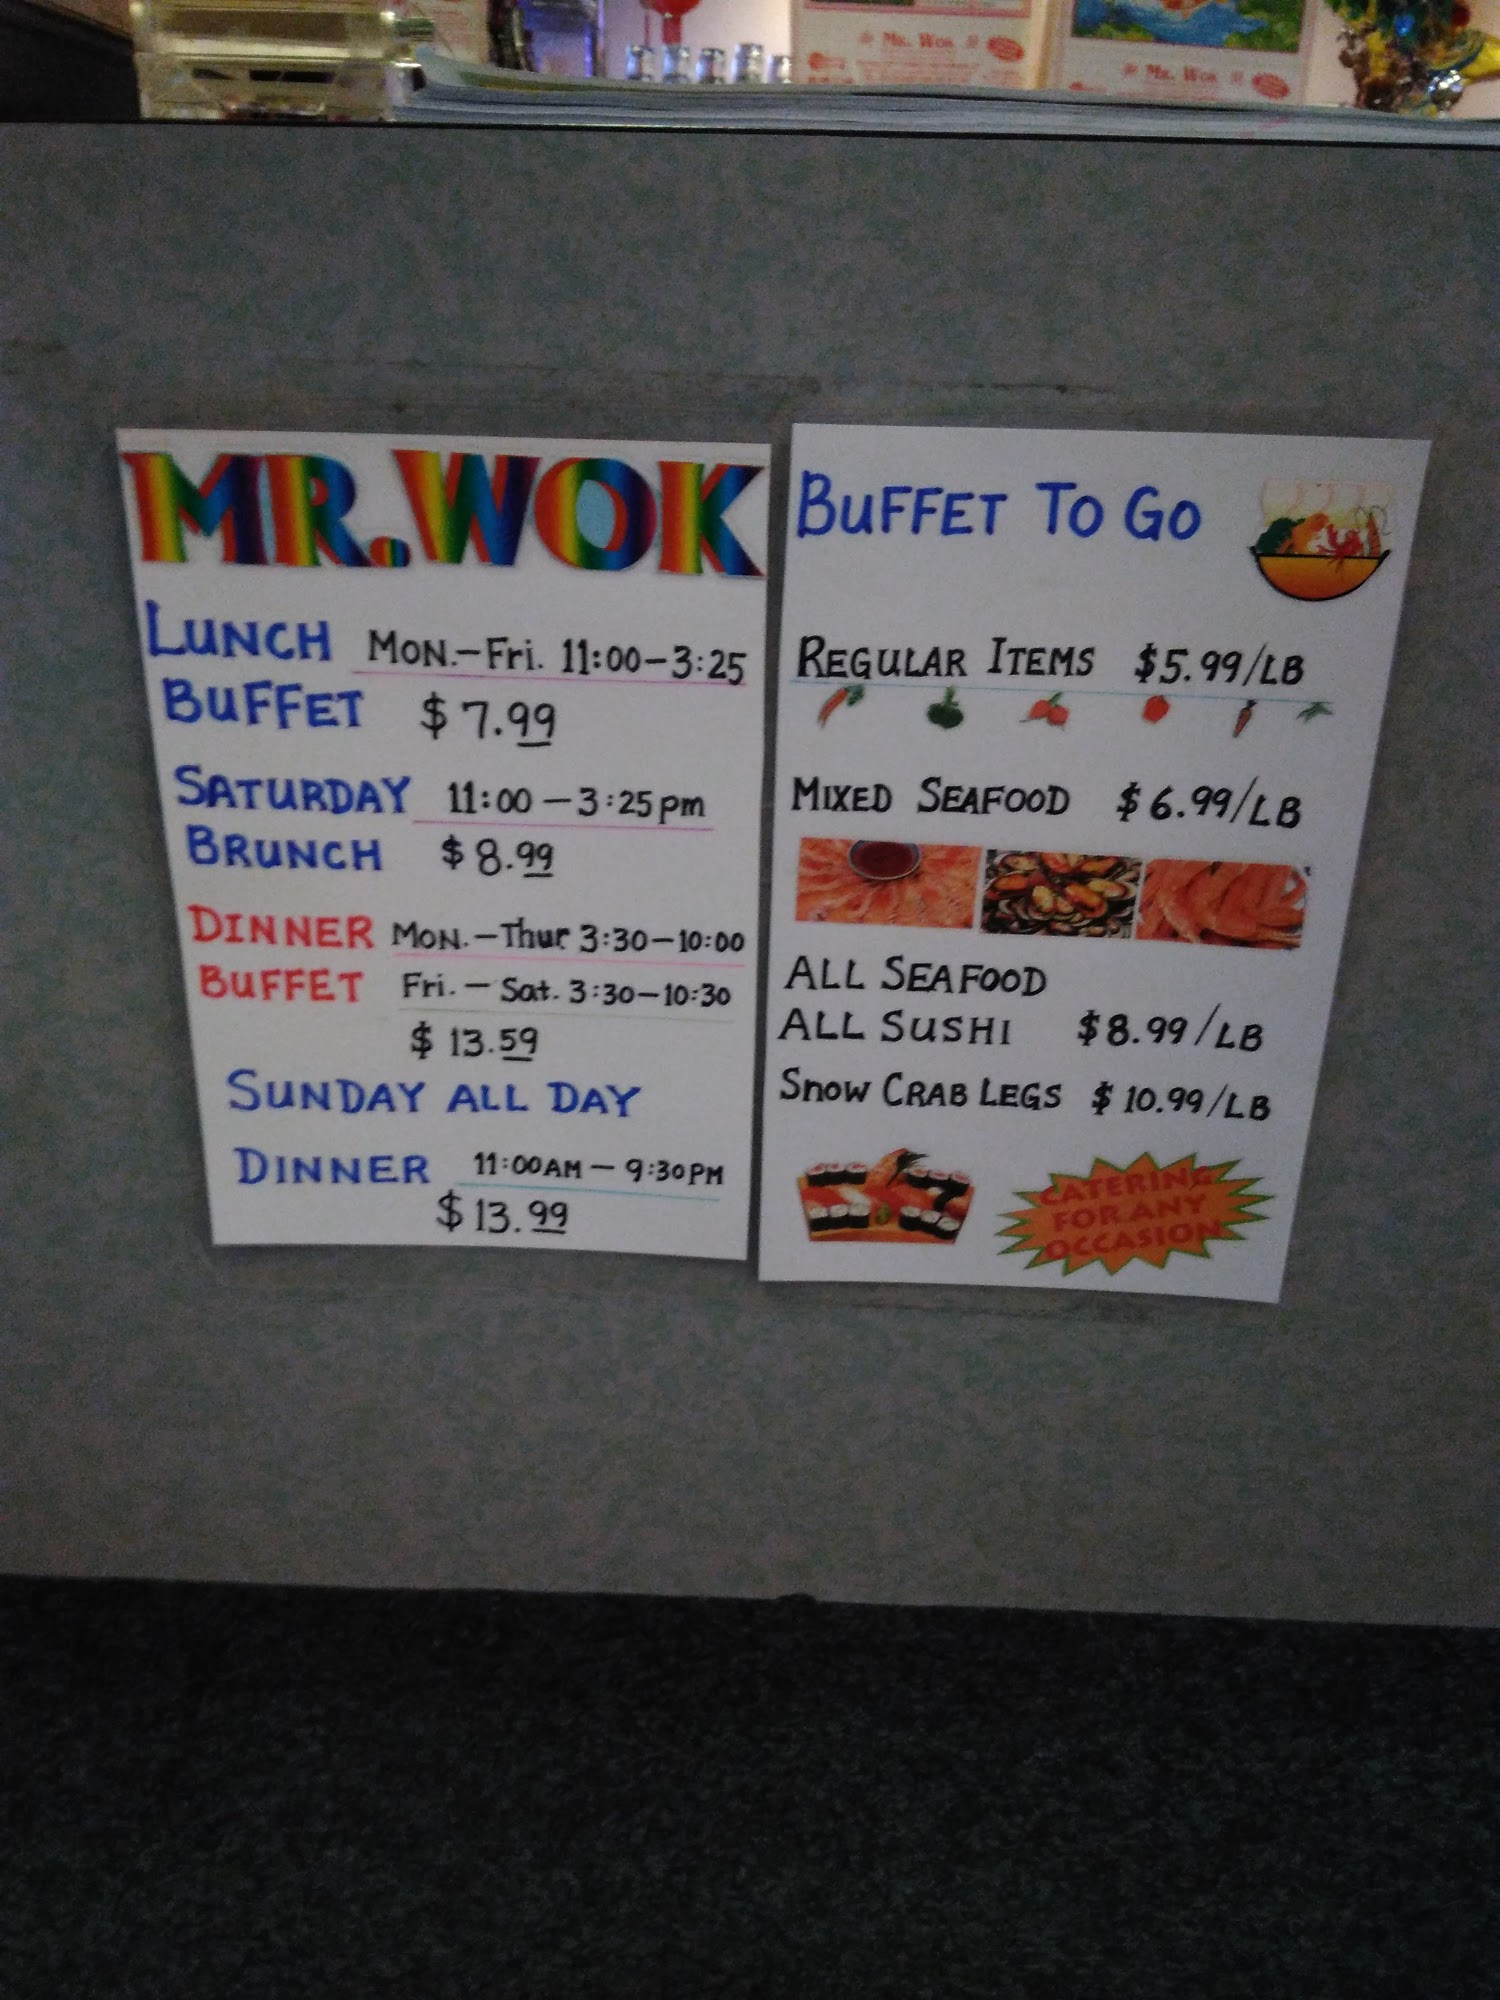 MR. WOK
MR. WOK
MR.WOK
LUNCH MON.-Fri. 11:00-3:25
BUFFET $7.99
SATURDAY 11:00-3:25pm
BRUNCH $8.99
DINNER MON.-Thur 3:30-10:00
BUFFET Fri.-Sat. 3:30-10:30
$13.59
SUNDAY ALL DAY
DINNER 11:00AM-9:30PM
$13.99
BUFFET TO GO
REGULAR ITEMS $5.99/LB
MIXED SEAFOOD $6.99/LB
ALL SEAFOOD
ALL SUSHI $8.99/LB
SNOW CRAB LEGS $10.99/LB
CATERING
FOR ANY
OCCASION